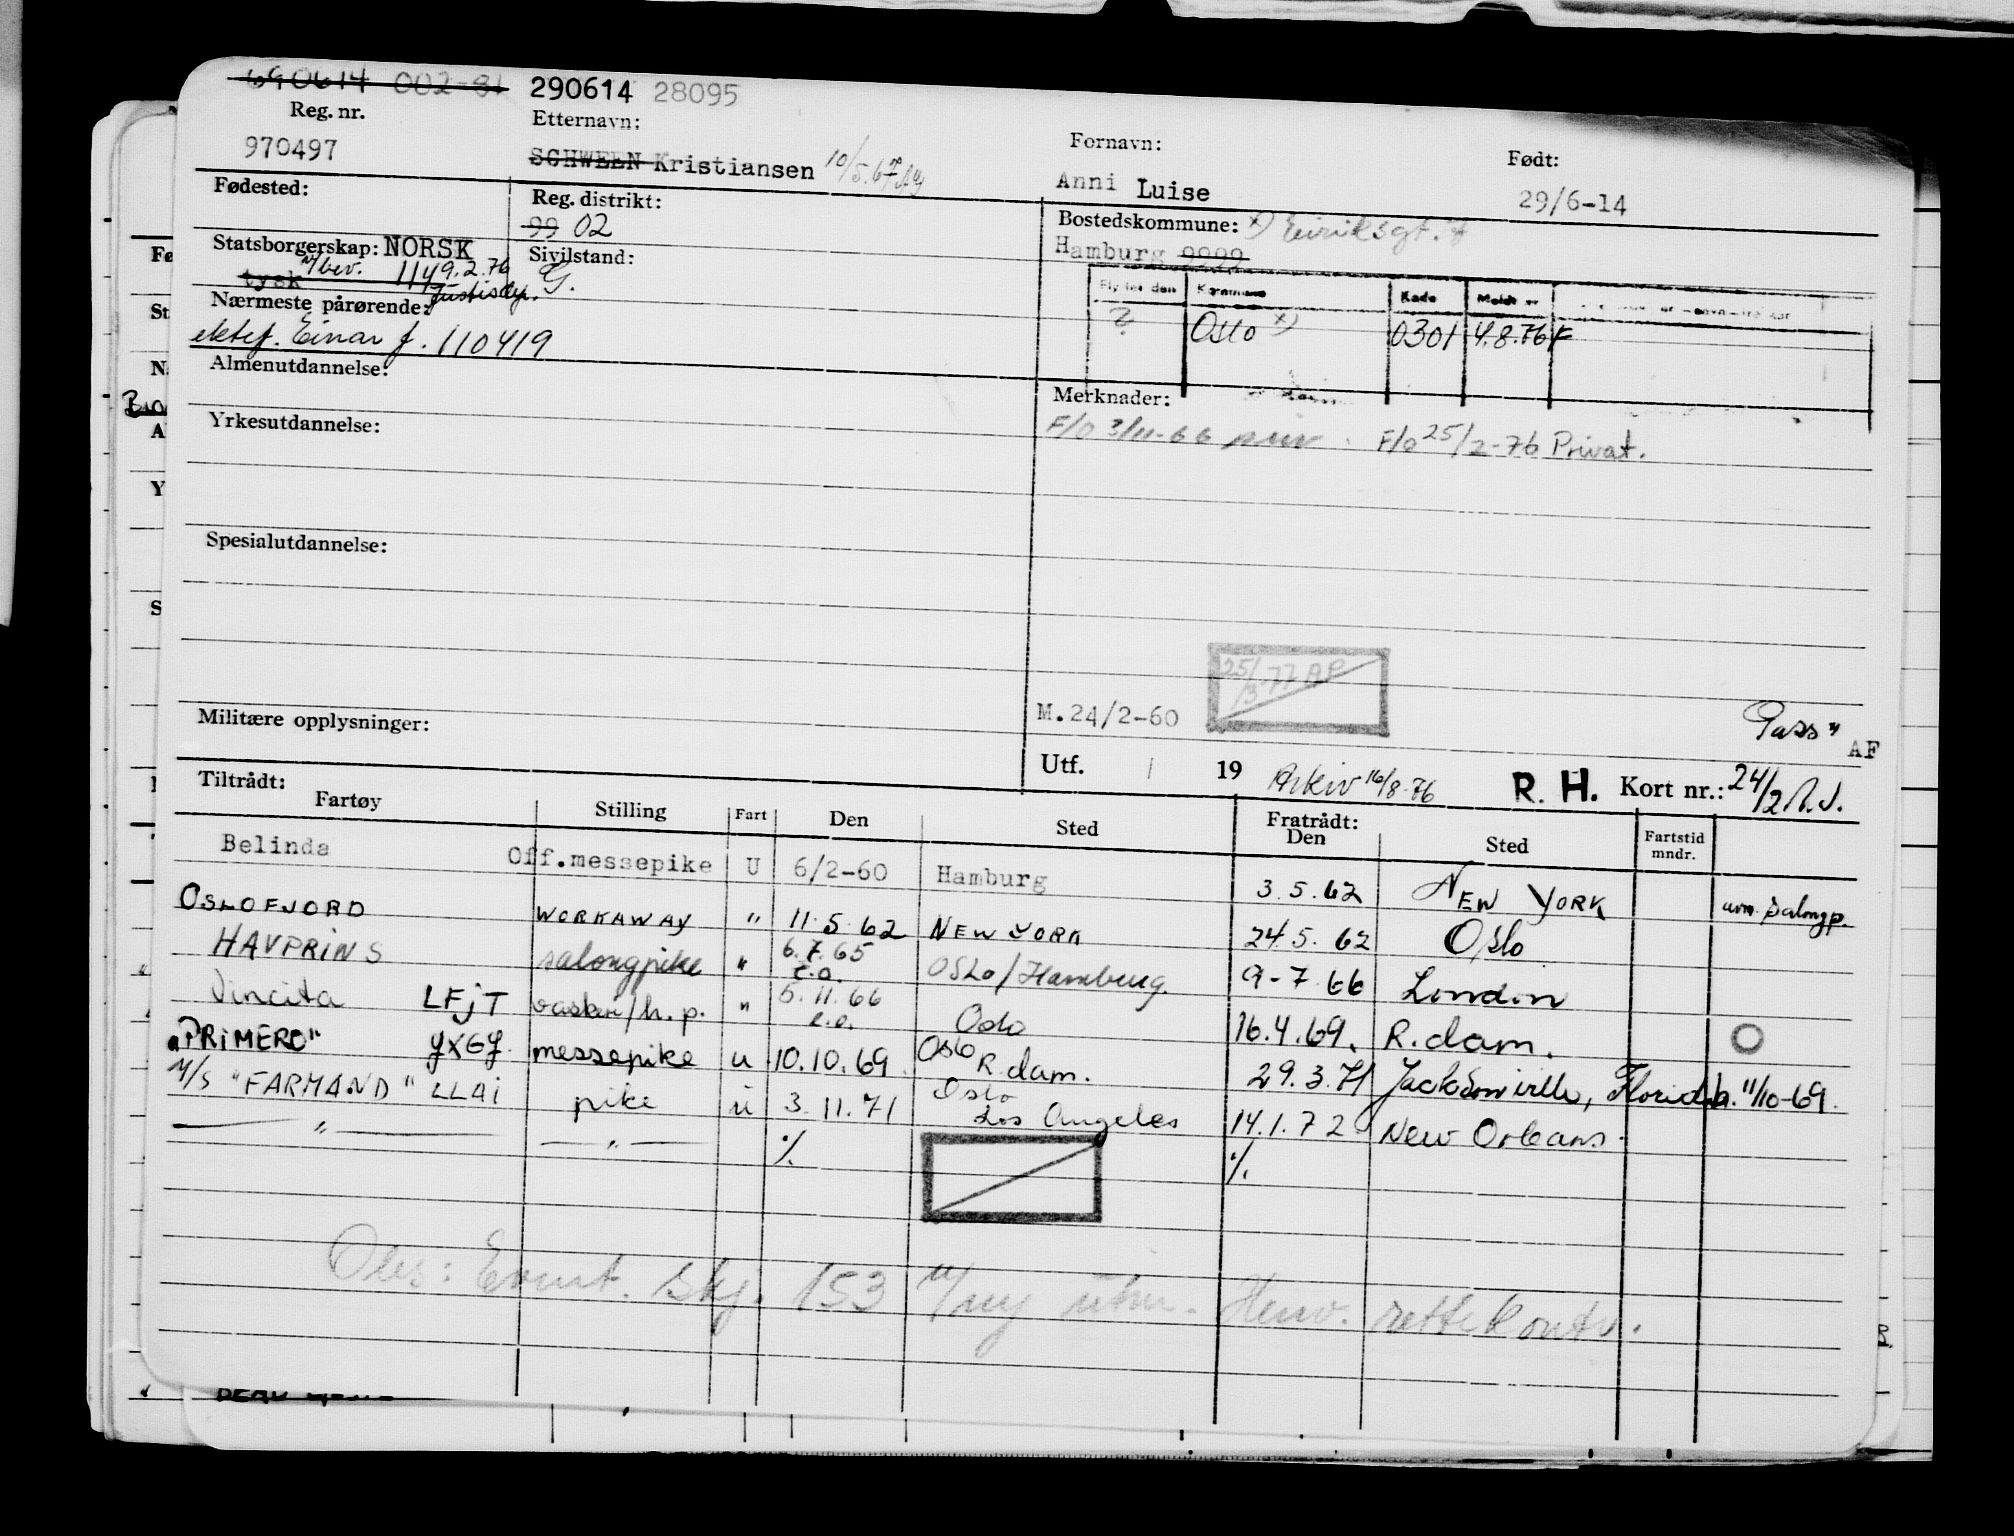 690614 002-81 290614 28095
Reg. nr. Etternavn: Fornavn: Født:
970497 SCHWEEN Kristiansen 10/5.67 Anni Luise 29/6-14
Fødested: Reg. distrikt: Bostedskommune: x) Eiriksgt. 7
99 02 Hamburg 9999
Statsborgerskap: NORSK Sivilstand:
tysk m/bev. 1149.2.76 Justisdep. G.
Nærmeste pårørende: Kommune Kode Meldt
ektef. Einar f. 110419 ? Oslo x) 0301 4.8.76 F
Almenutdannelse: Merknader:
F/O 3/11-66 priv. F/o 25/2-76 Privat.
Yrkesutdannelse:
Spesialutdannelse:
25/3-77 AP
M.24/2-60 Pass"
Militære opplysninger: AF
Utf. 19 Arkiv 16/8-76 R. H. Kort nr.: 24/2
Tiltrådt: Fratrådt:
Fartøy Stilling Fart Den Sted Den Sted Fartstid mndr.
Belinda Off.messepike U 6/2-60 Hamburg 3.5.62 NEW YORK avm. salongp.
OSLOFJORD WORKAWAY " 11.5.62 NEW YORK 24.5.62 Oslo
HAVPRINS salongpike " 6.7.65 e.o. OSLO/Hamburg. 9-7.66 London
Vincita LFJT vaskeri/h.p. " 5.11.66 e.o. Oslo 16.4.69. R.dam. O
"PRIMERO" messepike u 10.10.69 Oslo R.dam. 29.3.71 Jacksonville, Florida 11/10-69.
M/S "FARMAND" LLAI pike u 3.11.71 Oslo Los Angeles 14.1.72 New Orleans.
" " % %
Obs: Event. skj. 153 m/ny Henv. rettekontr.